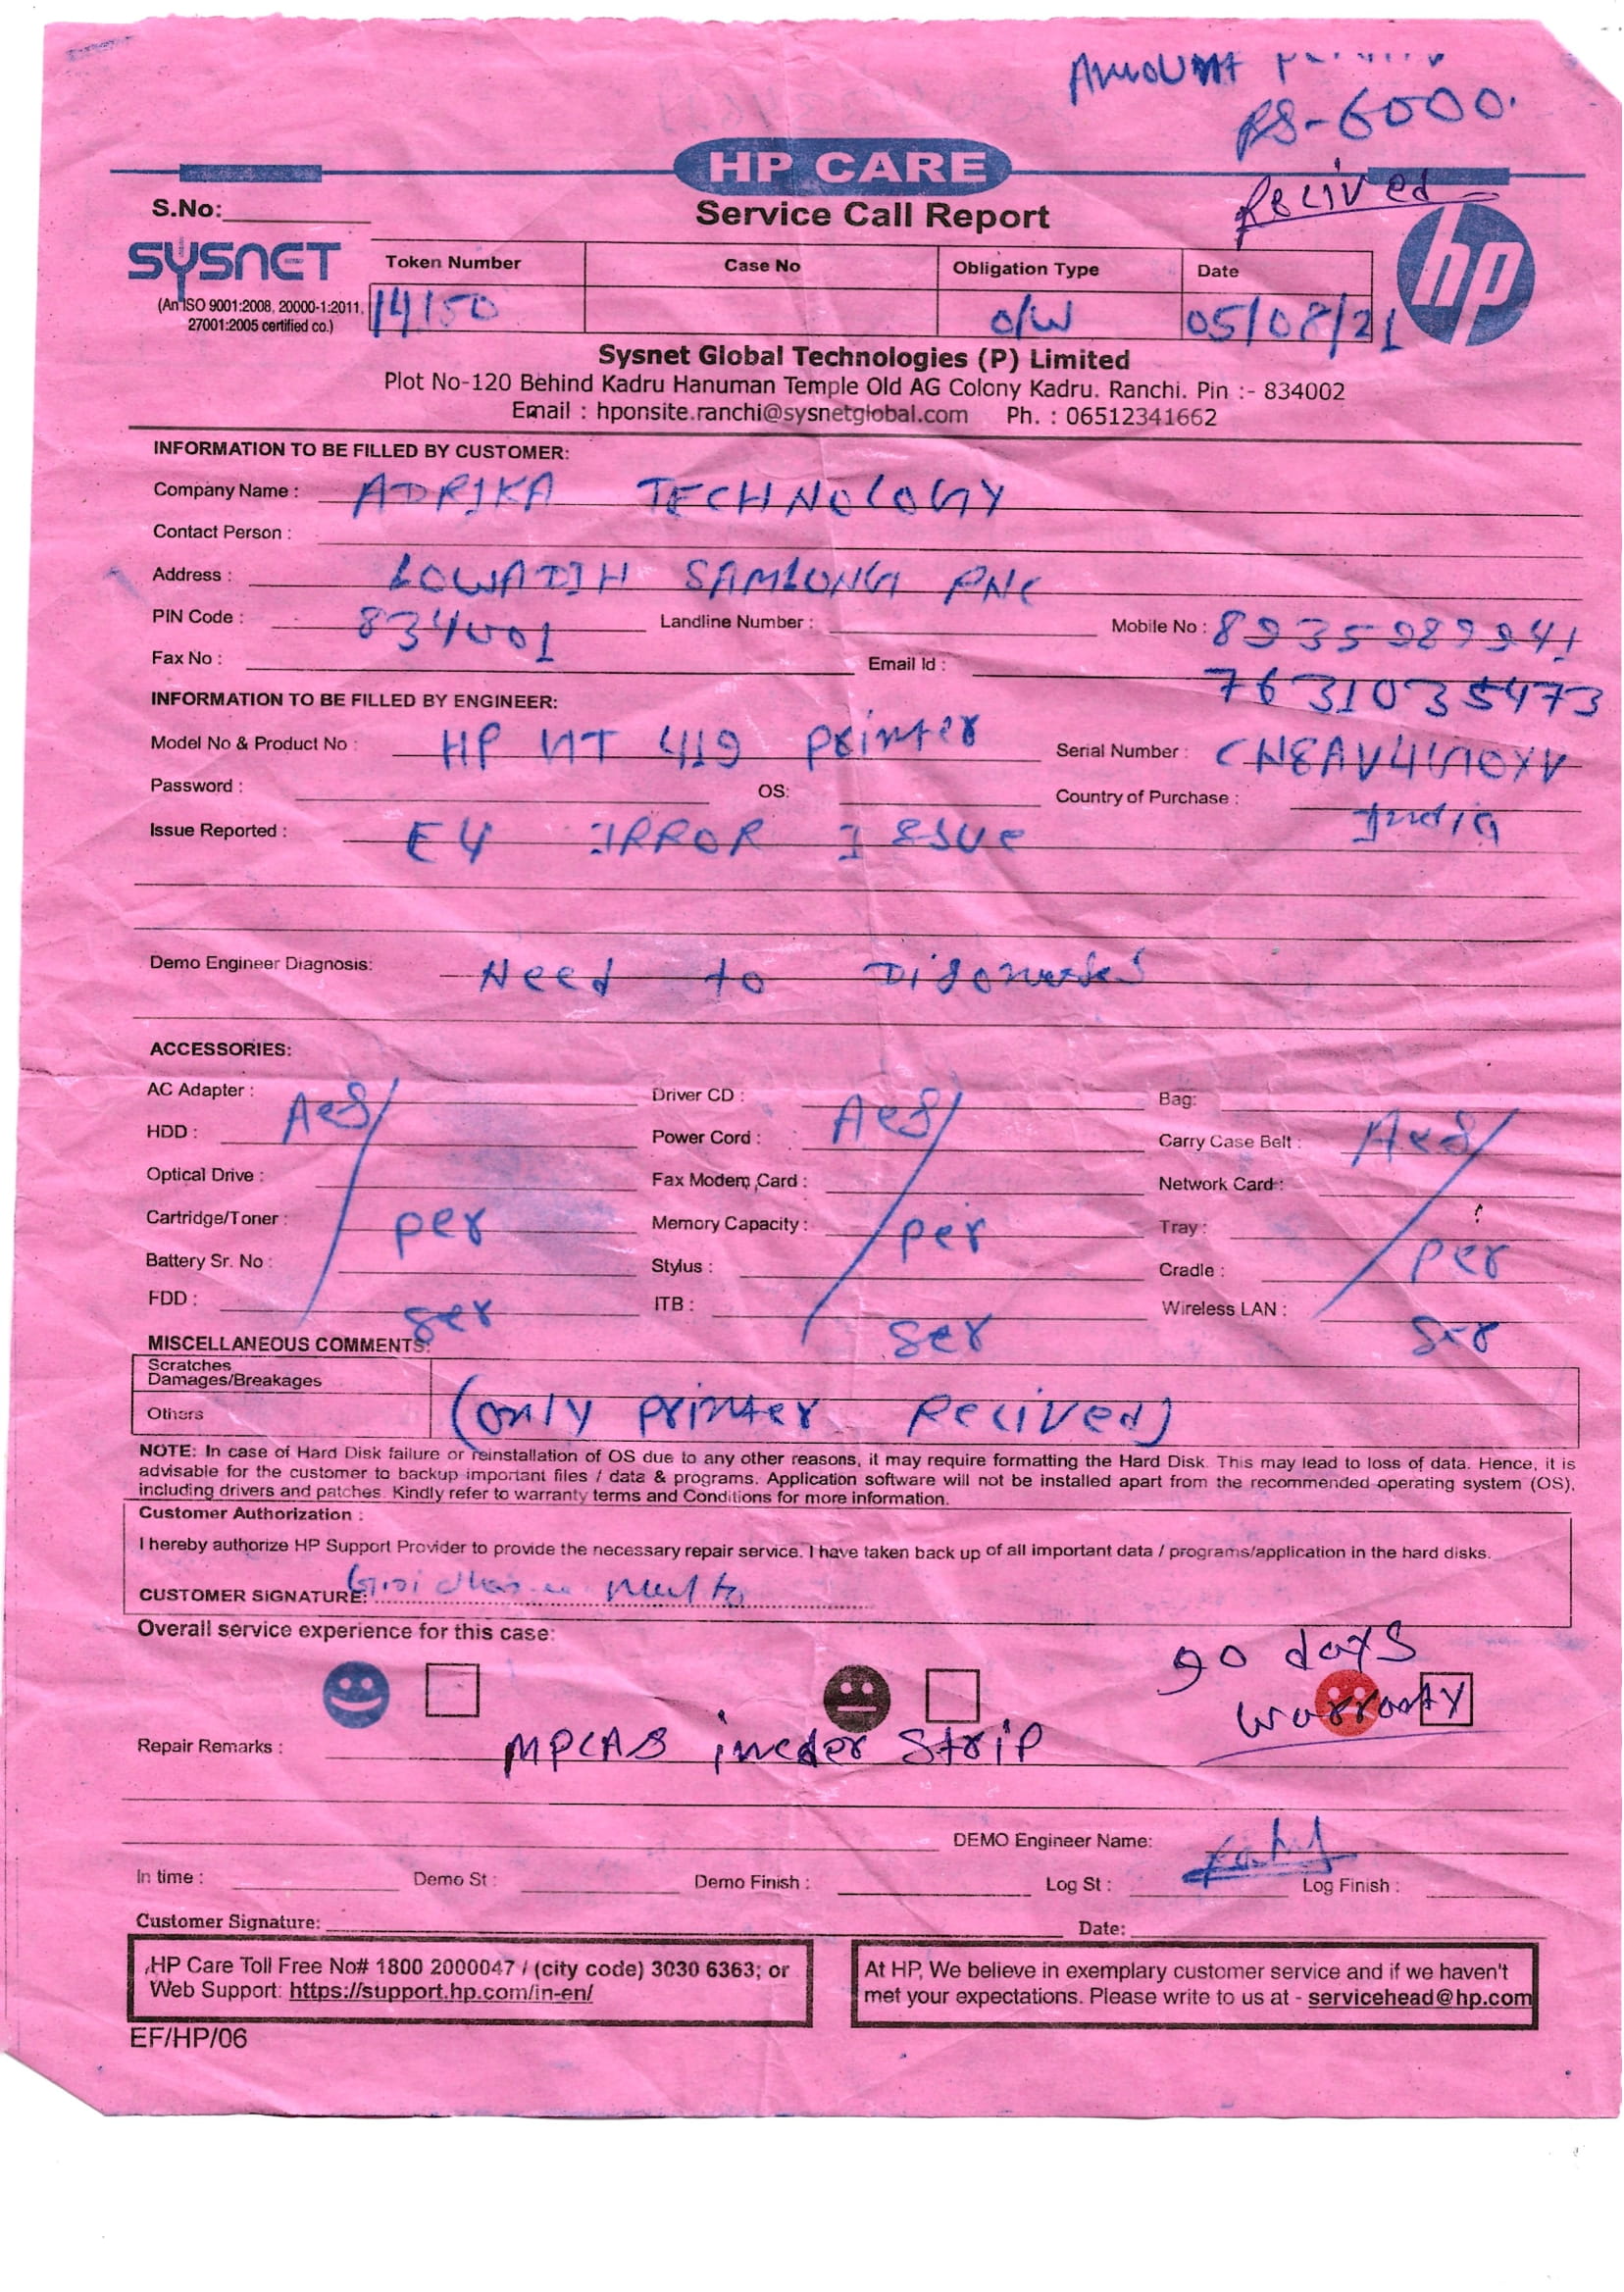 Amount
RS-6000.
HP CARE
Recived
S.No:
Service Call Report
SYSNET
(An ISO 9001:2008, 20000-1:2011,
27001:2005 certified co.)
Token Number Case No Obligation Type Date
14150 O/W 05/08/21
hp
Sysnet Global Technologies (P) Limited
Plot No-120 Behind Kadru Hanuman Temple Old AG Colony Kadru. Ranchi. Pin :- 834002
Email : hponsite.ranchi@sysnetglobal.com Ph. : 06512341662
INFORMATION TO BE FILLED BY CUSTOMER:
Company Name : ADRIKA TECHNOLOGY
Contact Person :
Address : LOWADIH SAMLONG RNC
PIN Code : 834001 Landline Number : Mobile No :
Fax No : Email Id :
7631035473
INFORMATION TO BE FILLED BY ENGINEER:
Model No & Product No : HP 419 printer Serial Number :
Password : OS: Country of Purchase : India
Issue Reported : E4 IRROR ISSUE
Demo Engineer Diagnosis: Need to
ACCESSORIES:
AC Adapter : Driver CD : Bag:
HDD : Power Cord : Carry Case Belt :
Optical Drive : Fax Modem Card : Network Card :
Cartridge/Toner : per Memory Capacity : per Tray : per
Battery Sr. No : Stylus : Cradle :
FDD : ser ITB : ser Wireless LAN : ser
MISCELLANEOUS COMMENTS:
Scratches
Damages/Breakages
Others (only printer Recived)
NOTE: In case of Hard Disk failure or reinstallation of OS due to any other reasons, it may require formatting the Hard Disk. This may lead to loss of data. Hence, it is
advisable for the customer to backup important files / data & programs. Application software will not be installed apart from the recommended operating system (OS),
including drivers and patches. Kindly refer to warranty terms and Conditions for more information.
Customer Authorization :
I hereby authorize HP Support Provider to provide the necessary repair service. I have taken back up of all important data / programs/application in the hard disks.
CUSTOMER SIGNATURE:
Overall service experience for this case:
90 days
warranty
Repair Remarks : MPCAS incder Strip
DEMO Engineer Name:
In time : Demo St : Demo Finish : Log St : Log Finish :
Customer Signature: Date:
HP Care Toll Free No# 1800 2000047 / (city code) 3030 6363; or
Web Support: https://support.hp.com/in-en/
At HP, We believe in exemplary customer service and if we haven't
met your expectations. Please write to us at - servicehead@hp.com
EF/HP/06